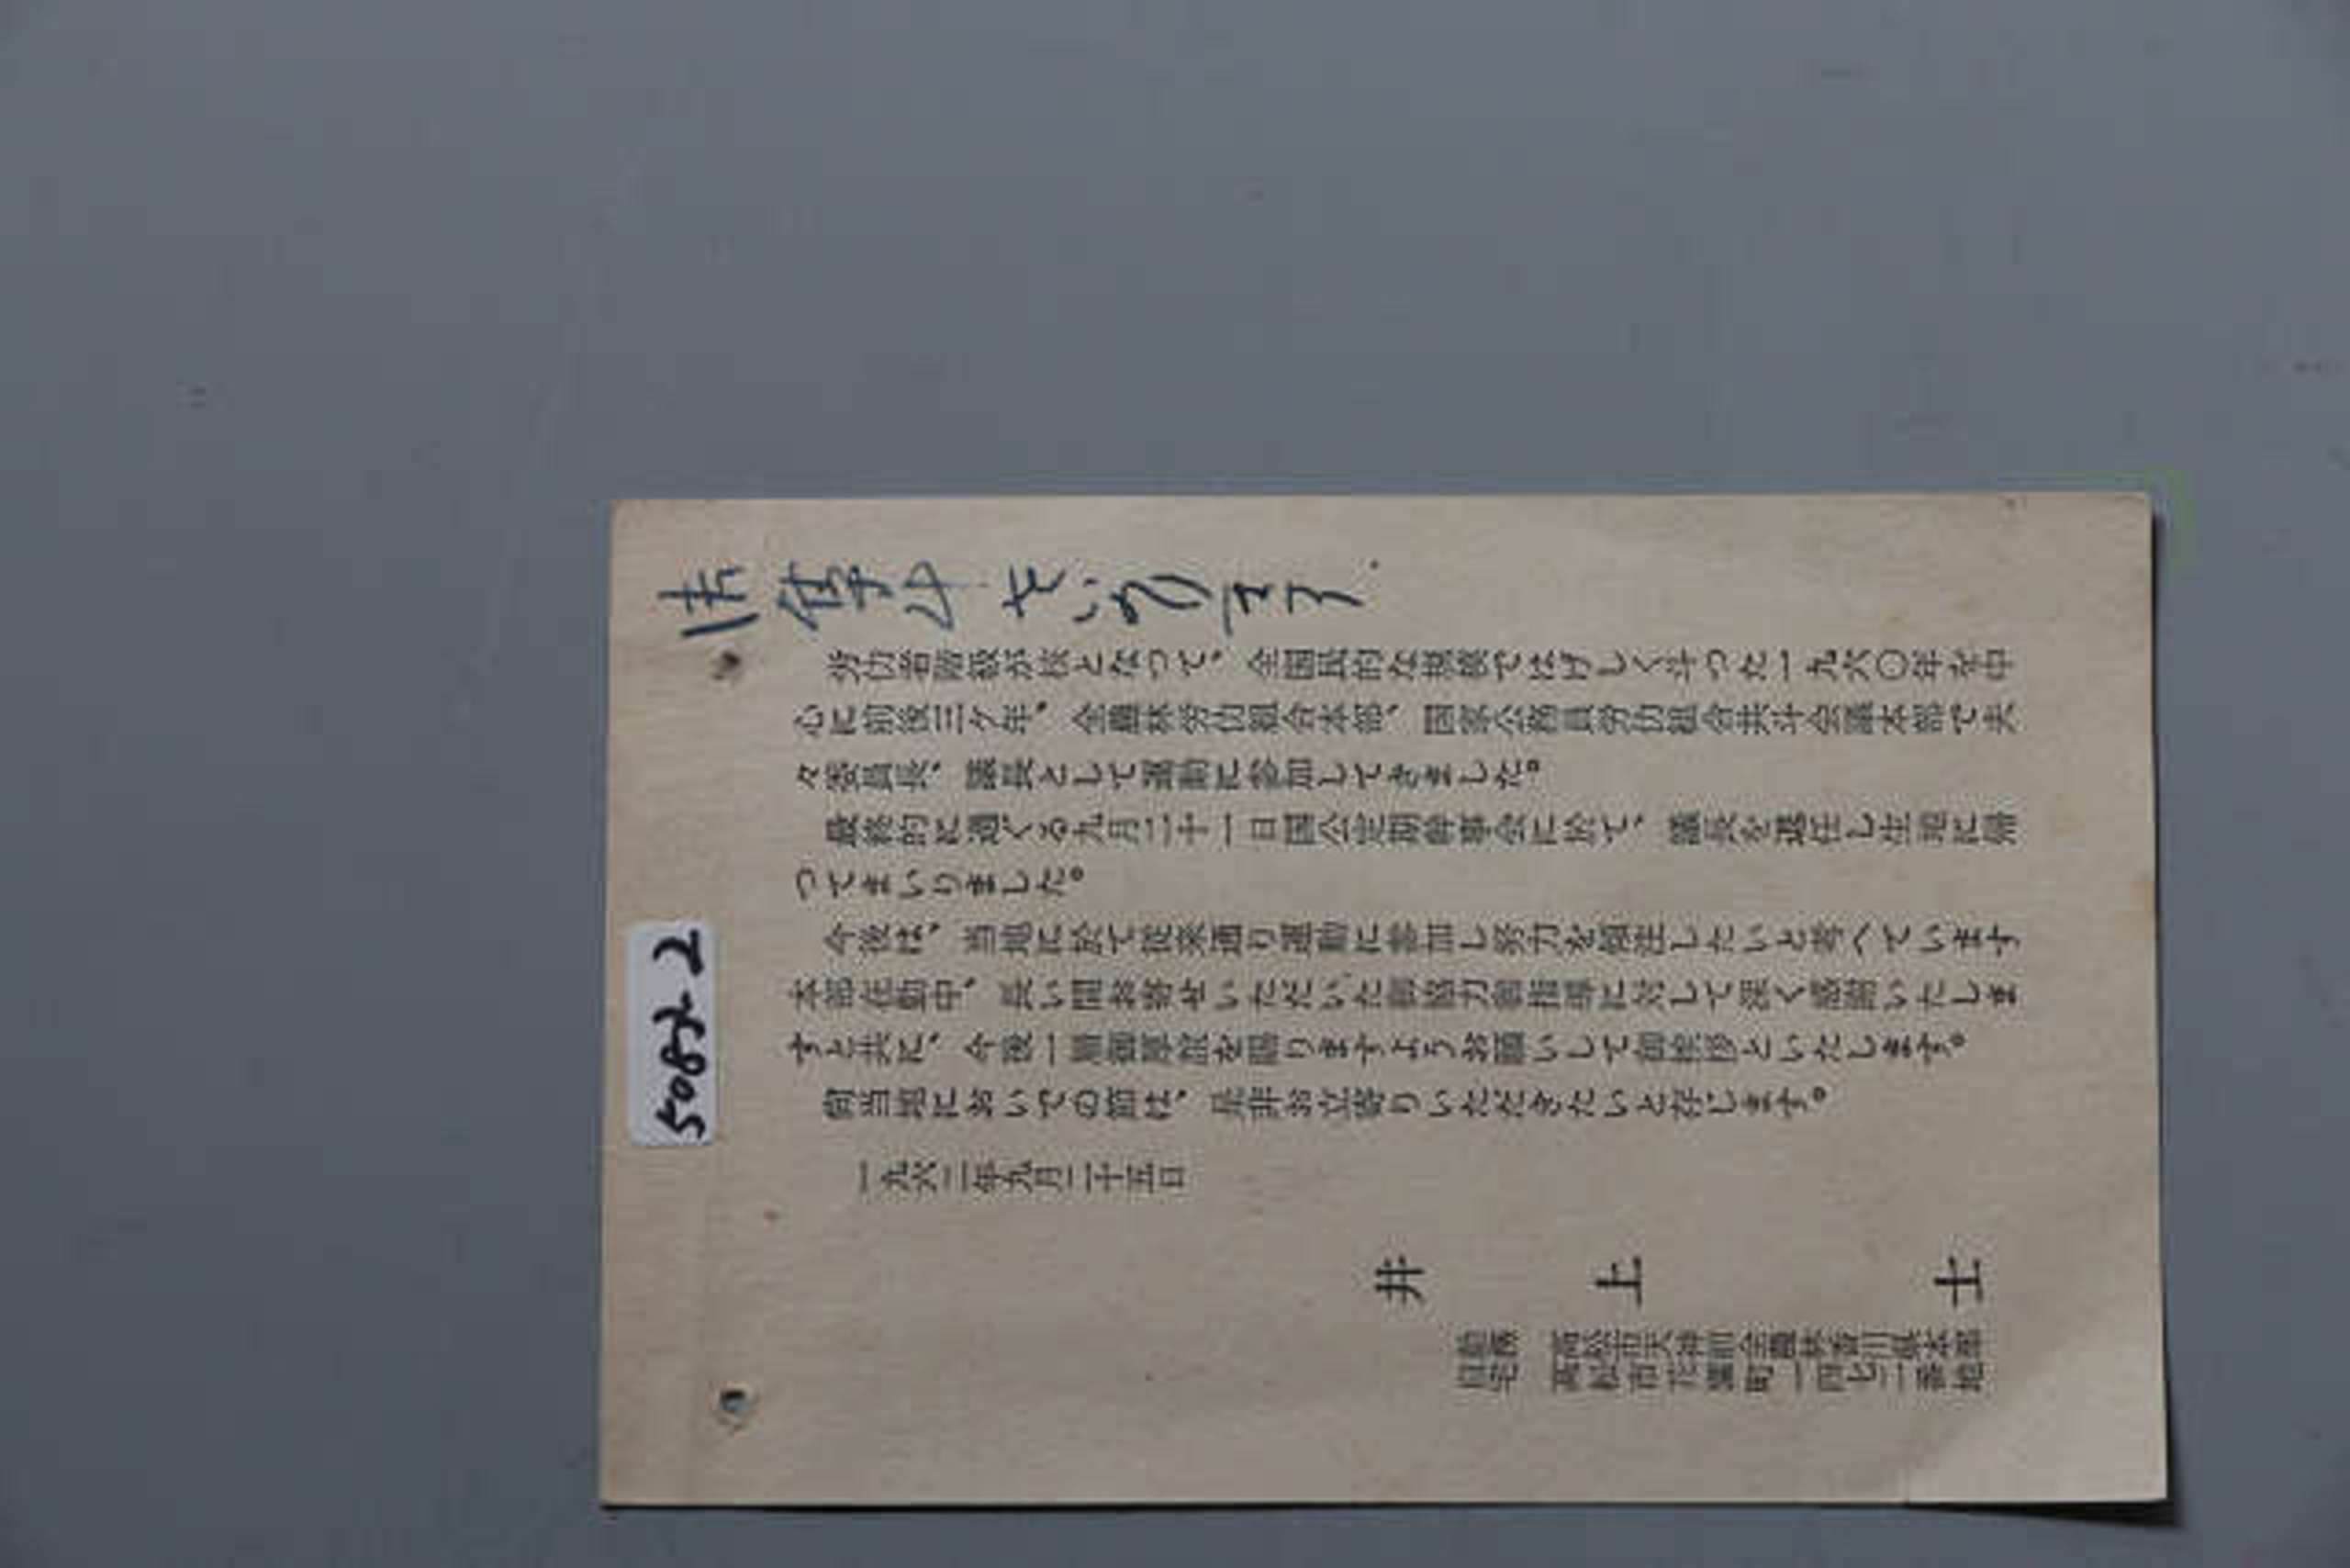 労仂者階級が核となつて、全国民的な規模ではげしく斗つた一九六〇年を中
心に前後三ケ年、全農林労仂組合本部、国家公務員労仂組合共斗会議本部で夫
々委員長、議長として運動に参加してきました。
最終的に過ぐる九月二十一日国公定期幹事会に於て、議長を退任し生地に帰
つてまいりました。
今後は、当地に於て従来通り運動に参加し努力を傾注したいと考へています
本部在勤中、長い間お寄せいただいた御協力御指導に対して深く感謝いたしま
すと共に、今後一層御厚誼を賜りますようお願いして御挨拶といたします。
尚当地においでの節は、是非お立寄りいただきたいと存じます。
一九六二年九月二十五日
井上 士
勤務 高松市天神前全農林香川県本部
自宅 高松市花園町一四七二番地
5083-2